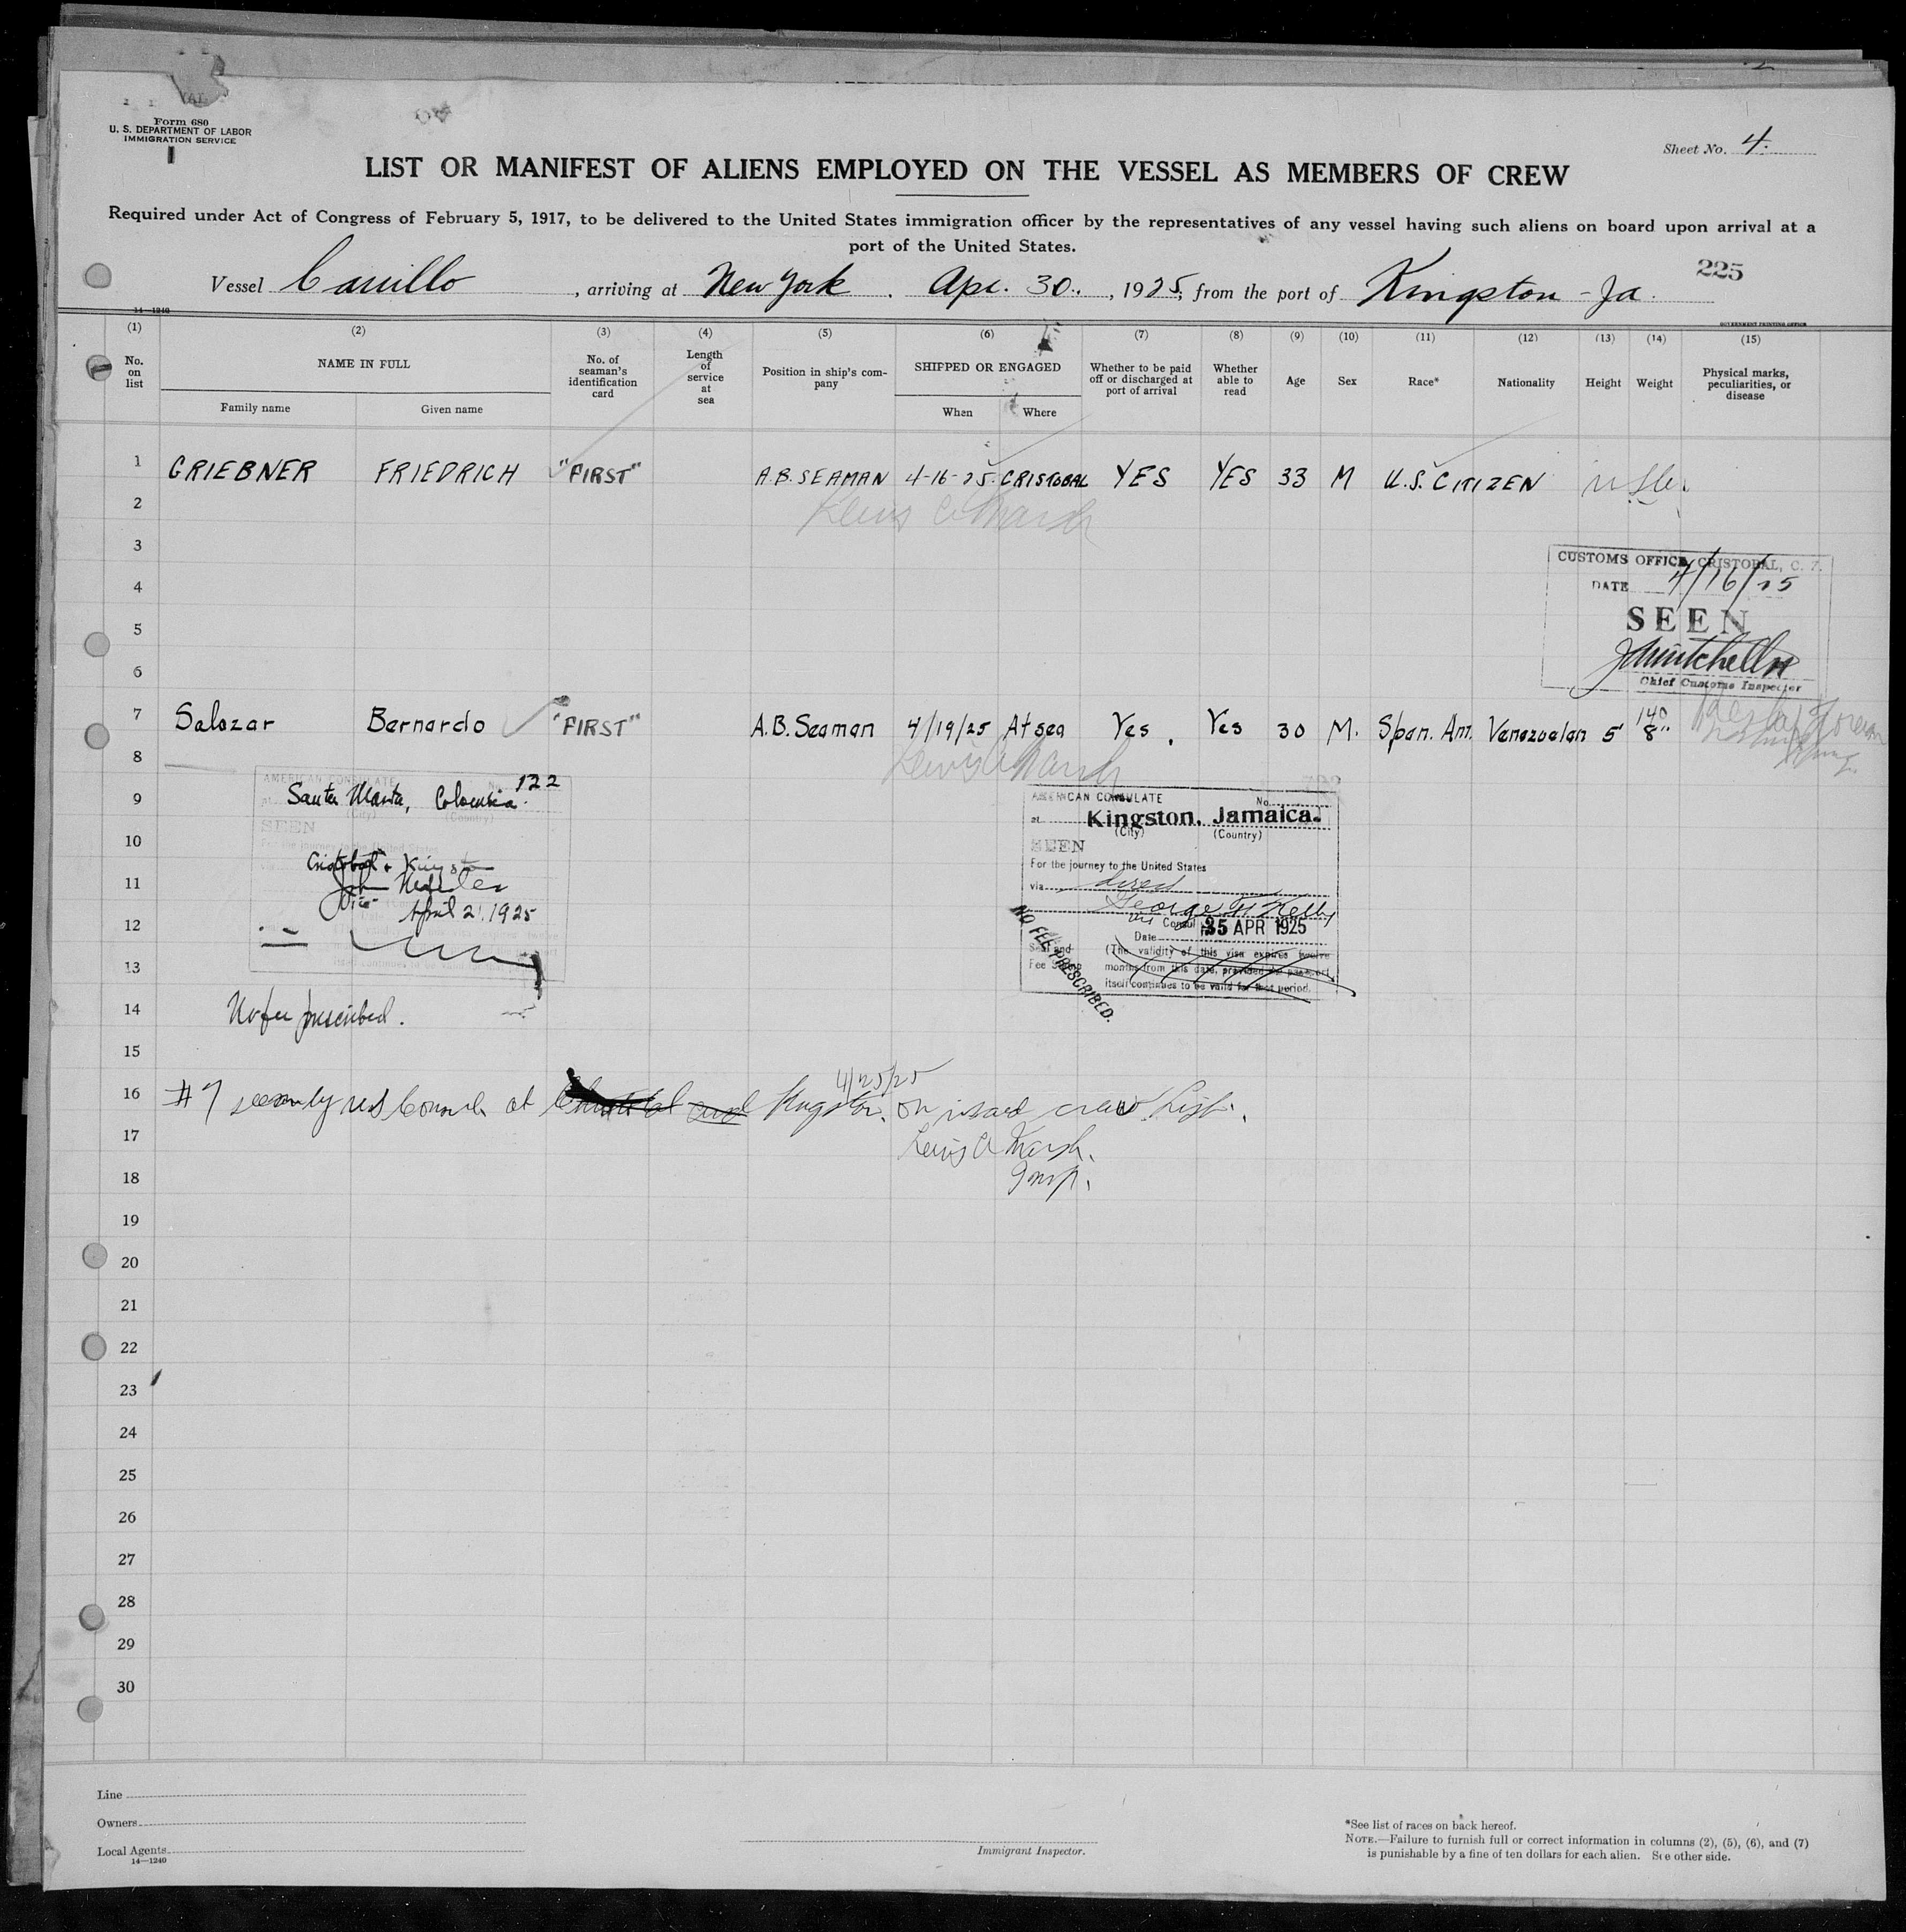 Form 680
U. S. DEPARTMENT OF LABOR
IMMIGRATION SERVICE
Sheet No. 4.
LIST OR MANIFEST OF ALIENS EMPLOYED ON THE VESSEL AS MEMBERS OF CREW
Required under Act of Congress of February 5, 1917, to be delivered to the United States immigration officer by the representatives of any vessel having such aliens on board upon arrival at a
port of the United States.
225
Vessel Carrillo, arriving at New York. Apr. 30., 1925, from the port of Kingston - Ja.
14—1240
GOVERNMENT PRINTING OFFICE
(1) (2) (3) (4) (5) (6) (7) (8) (9) (10) (11) (12) (13) (14) (15)
No. on list
NAME IN FULL
Family name
Given name
No. of seaman's identification card
Length of service at sea
Position in ship's company
SHIPPED OR ENGAGED
When
Where
Whether to be paid off or discharged at port of arrival
Whether able to read
Age
Sex
Race*
Nationality
Height
Weight
Physical marks, peculiarities, or disease
1 GRIEBNER FRIEDRICH "FIRST" A.B. SEAMAN 4-16-25. CRISTOBAL YES YES 33 M U.S. CITIZEN
2 Lewis A Marsh
3
CUSTOMS OFFICE, CRISTOBAL, C. Z.
4
DATE 4/16/25
5
SEEN
6
JMitchell
Chief Customs Inspector
7 Salazar Bernardo "FIRST" A.B. Seaman 4/19/25 At sea Yes. Yes 30 M. Span. Am. Venezuelan 5' 8" 140
8 Lewis A Marsh
AMERICAN CONSULATE No. 122
at Santa Marta, Colombia.
(City) (Country)
SEEN
For the journey to the United States
Cristobal & Kingston
John
Vice
April 21, 1925
AMERICAN CONSULATE No.
at Kingston, Jamaica.
(City) (Country)
SEEN
For the journey to the United States
via direct
George Kelly
Vice Consul
Date 25 APR 1925
Seal and
Fee Stamp
(The validity of this visa expires twelve
months from this date, provided the passport
itself continues to be valid for that period.
NO FEE PRESCRIBED.
9
10
11
12
13
14 No fee prescribed.
15
4/25/25
16 #7 at Cristobal and Kingston, on visaed crew List.
17 Lewis A Marsh.
18 Insp.
19
20
21
22
23
24
25
26
27
28
29
30
Line
Owners
Local Agents
14—1240
Immigrant Inspector.
*See list of races on back hereof.
NOTE.—Failure to furnish full or correct information in columns (2), (5), (6), and (7)
is punishable by a fine of ten dollars for each alien. See other side.